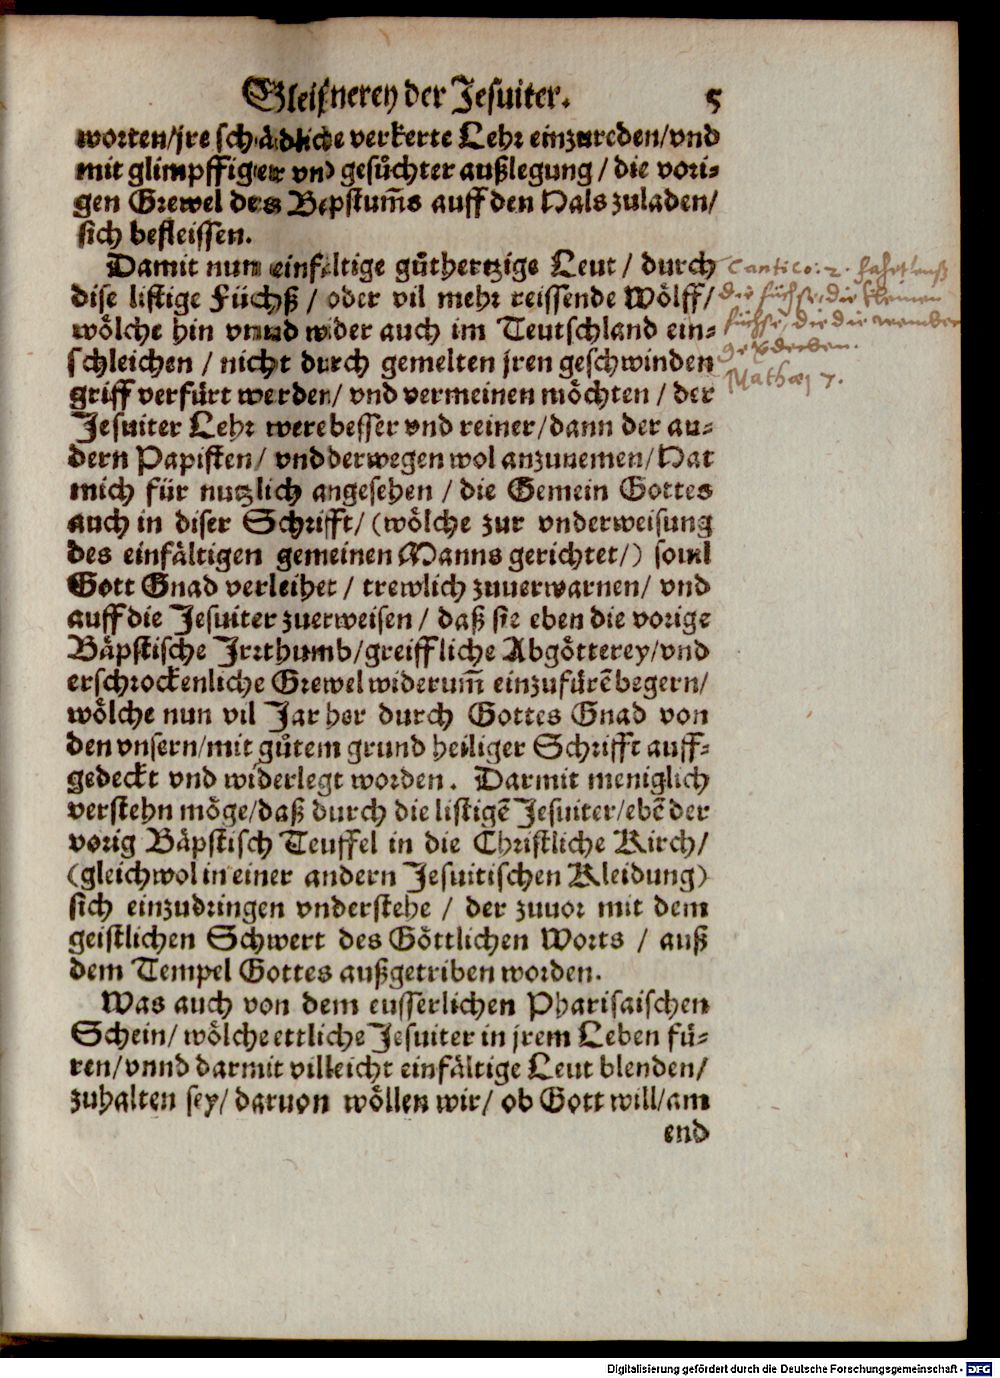 Gleißnerey der Jesuiter. 5
worten/jre schådliche verkerte Lehr einzureden/vnd
mit glimpffiger vnd gesůchter außlegung / die vori-
gen Grewel des Bepstum̃s auff den Hals zuladen/
sich befleissen.
Damit nun einfeltige gůthertzige Leut / durch
dise listige Füchß / oder vil mehr reissende Wölff/
wölche hin vnnd wider auch im Teutschland ein-
schleichen / nicht durch gemelten jren geschwinden
griff verfürt werden/ vnd vermeinen möchten / der
Jesuiter Lehr were besser vnd reiner/dann der an-
dern Papisten/ vnd derwegen wol anzunemen/Hat
mich für nutzlich angesehen / die Gemein Gottes
auch in diser Schrifft/ (wölche zur vnderweisung
des einfältigen gemeinen Manns gerichtet/) souil
Gott Gnad verleihet / trewlich zuuerwarnen/ vnd
auff die Jesuiter zuerweisen / daß sie eben die vorige
Bäpstische Irrthumb/greiffliche Abgötterey/vnd
erschrockenliche Grewel widerum̃ einzufürẽ begern/
wölche nun vil Jar her durch Gottes Gnad von
den vnsern/mit gůtem grund heiliger Schrifft auff-
gedeckt vnd widerlegt worden. Darmit meniglich
verstehn möge/daß durch die listigẽ Jesuiter/ebẽ der
vorig Bäpstisch Teuffel in die Christliche Kirch/
(gleichwol in einer andern Jesuitischen Kleidung)
sich einzudringen vnderstehe / der zuuor mit dem
geistlichen Schwert des Göttlichen Worts / auß
dem Tempel Gottes außgetriben worden.
Was auch von dem eusserlichen Pharisaischen
Schein/ wölche ettliche Jesuiter in jrem Leben fü-
ren/vnnd darmit villeicht einfältige Leut blenden/
zuhalten sey/ daruon wöllen wir/ ob Gott will/am
end
Cantico: 2.
die füchse, die kleinen
füchse, die die
Mathaj 7.
Digitalisierung gefördert durch die Deutsche Forschungsgemeinschaft - DFG